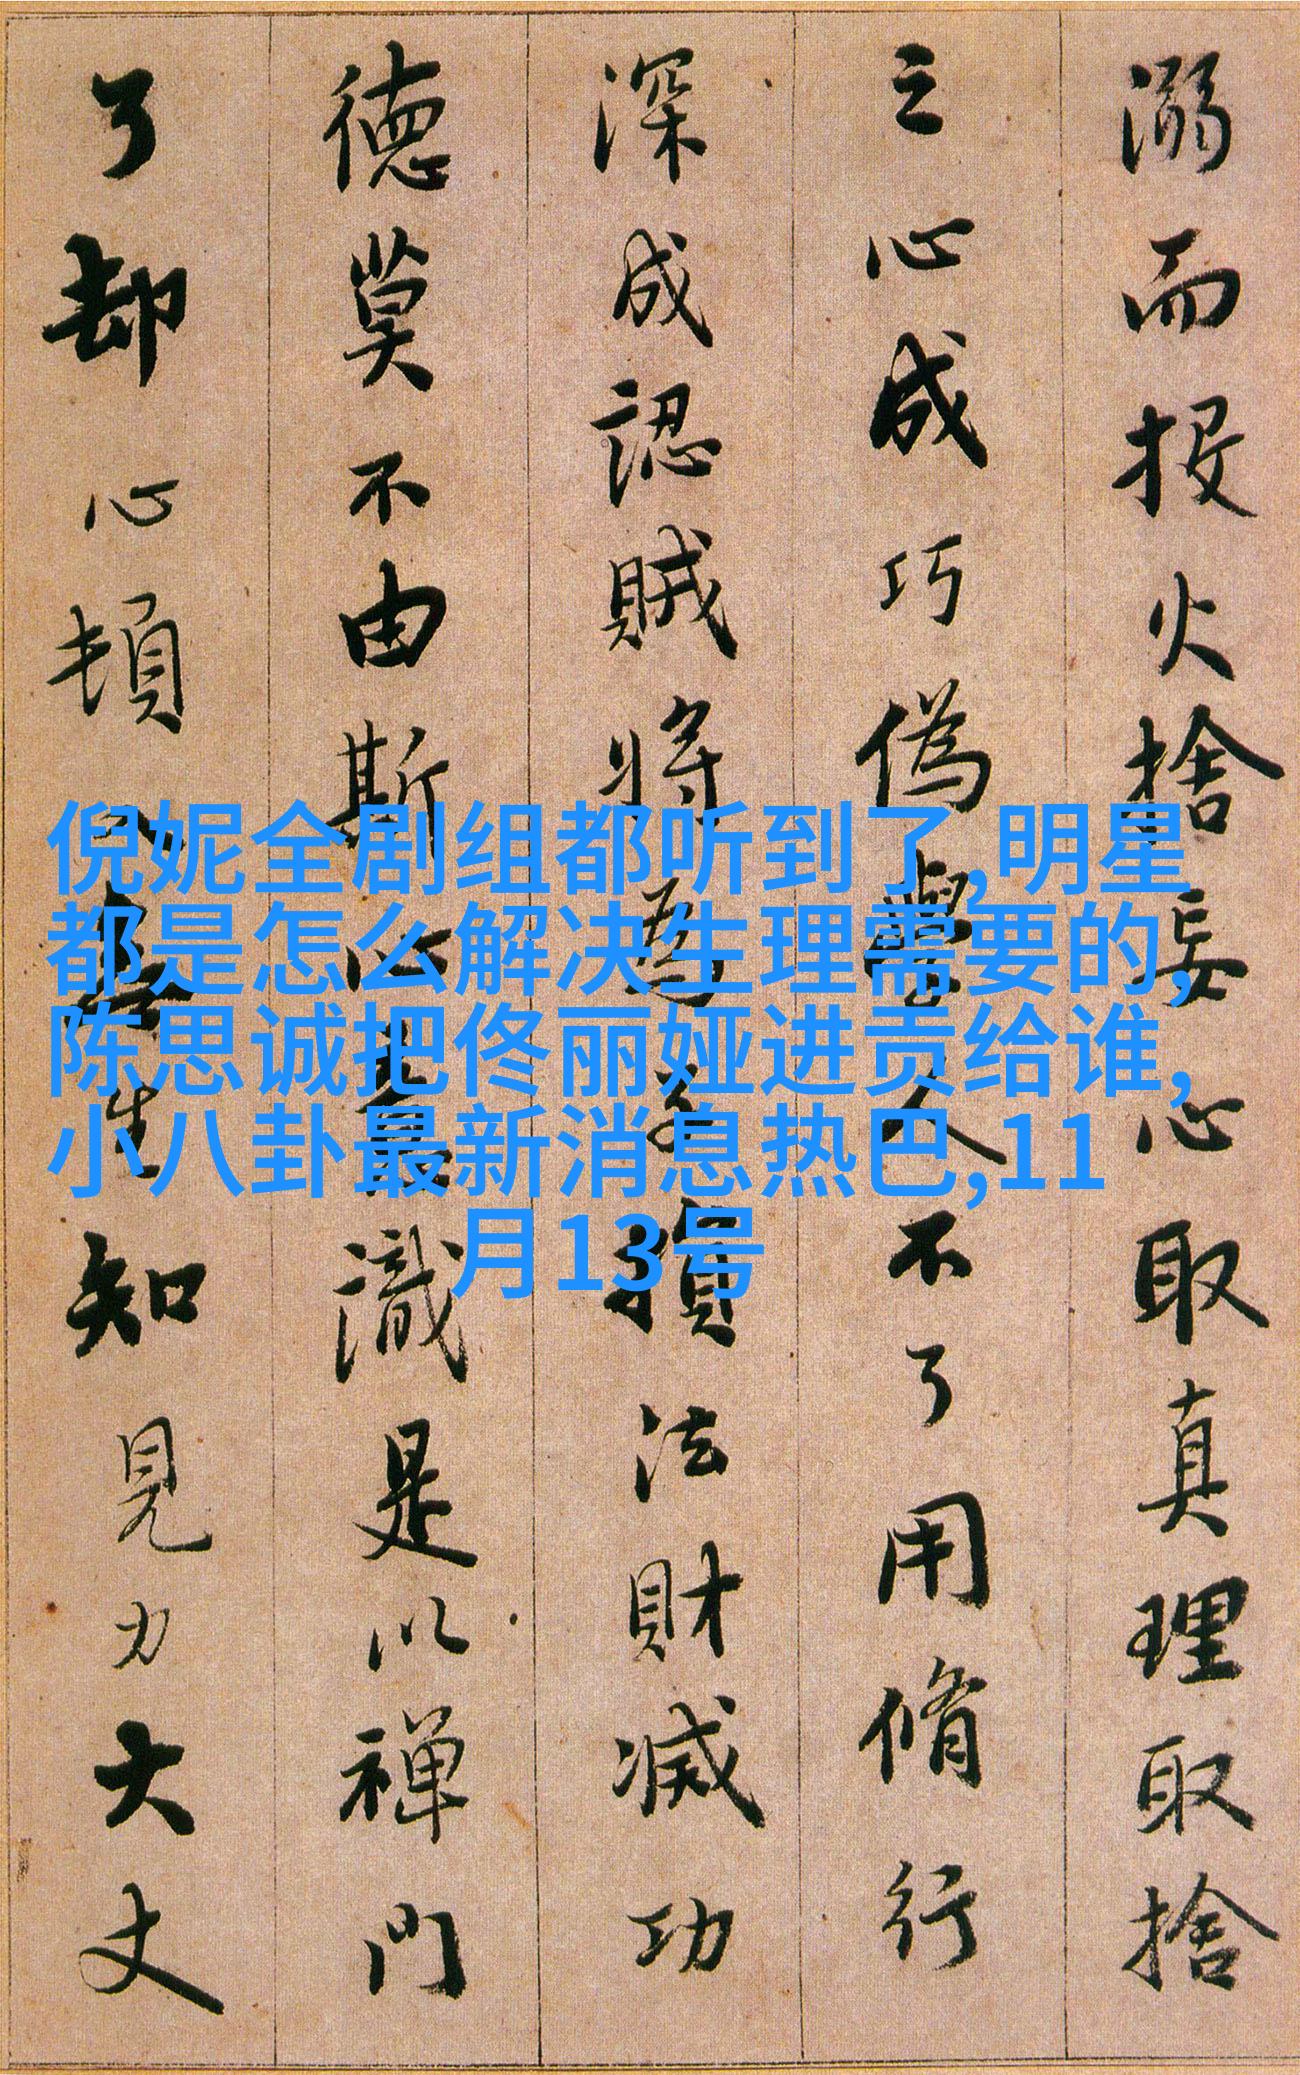 溺而投火捨妄心取真理取捨
之心成巧偽學人不了用脩行
深成認賊將為子損法財滅功
德莫不由斯心意識是以禪門
了却心頓入無生知見力大丈
倪妮全剧组都听到了,明星
都是怎么解决生理需要的,
陈思诚把佟丽娅进贡给谁,
小八卦最新消息热巴,11
月13号